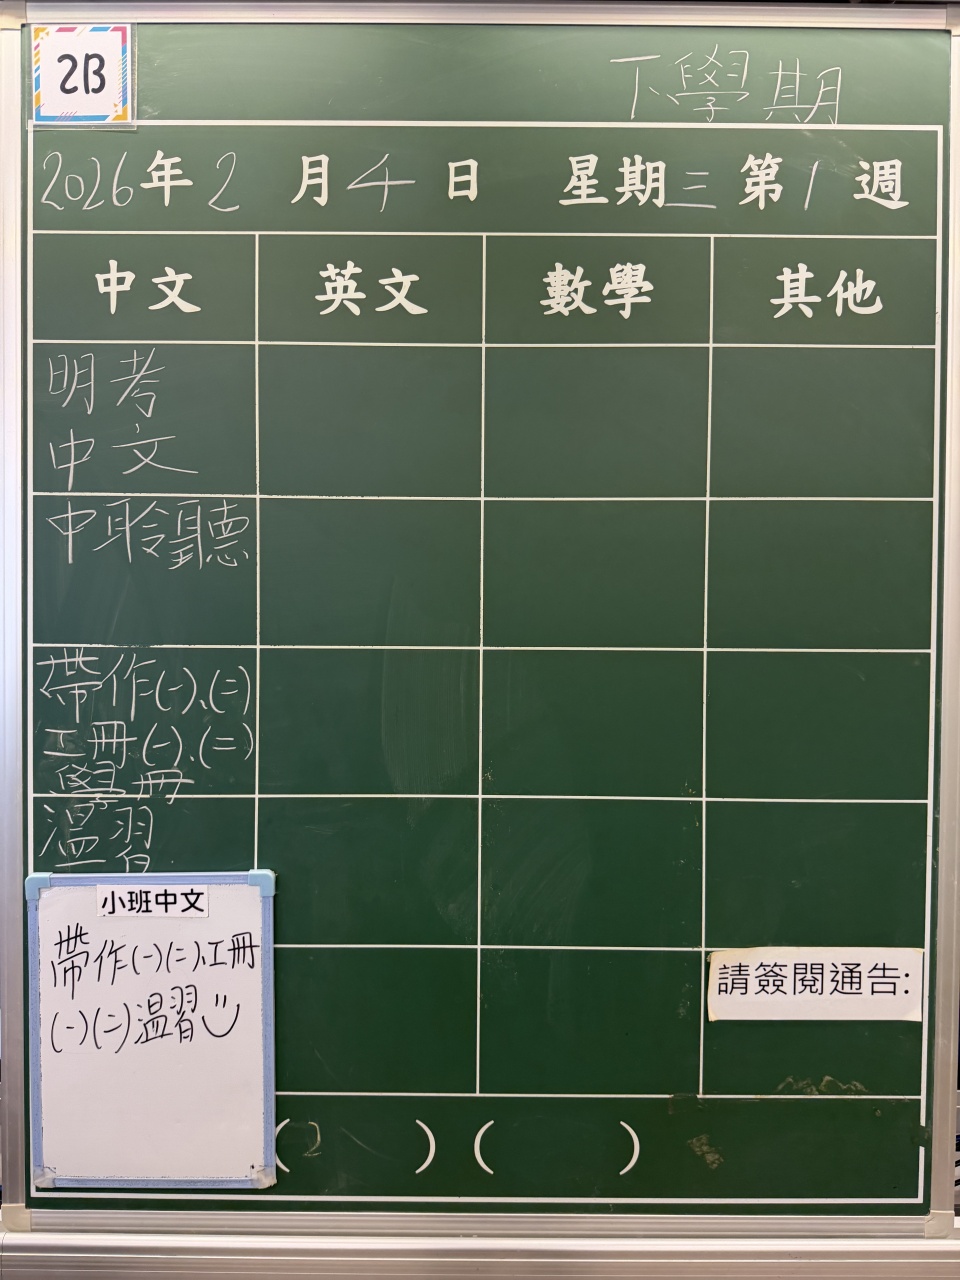 2B
下學期
2026年2月4日 星期三第1週
中文 英文 數學 其他
明考
中文
中聆聽
帶作(一)、(二)
工冊(一)、(二)
學冊
溫習
小班中文
帶作(一)(二)、工冊
(一)(二)溫習
請簽閱通告:
(2 ) ( )